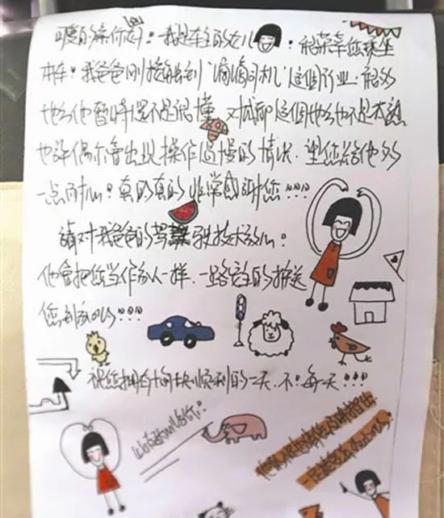 亲爱的乘客你好！我是车主的女儿！很荣幸您乘坐
本车！我爸爸刚接触到“滴滴司机”这个行业！很多
地方他暂时还不是很懂，对成都这个地方也不是太熟
也许偶尔会出现操作过慢的情况，望您给他多
一点耐心！真的真的非常感谢您!!!!
请对我爸爸的驾驶技术放心！
他会把您当作家人一样，一路安全的护送
您到目的地!!!
祝您拥有愉快顺利的一天，不！每一天!!!